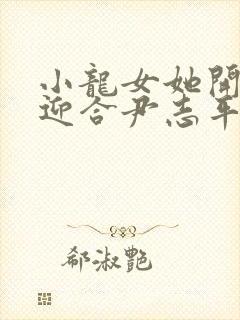 小龍女她開
迎合尹志平
郗淑艷